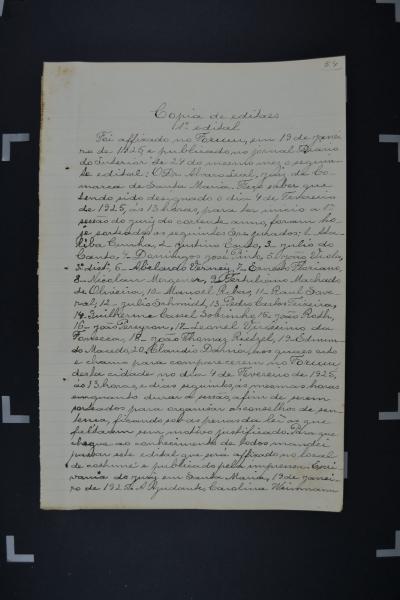 54
Copia de editaes
1º edital
Foi affixado no Forum, em 19 de Janei-
ro de 1925 e publicado no jornal Diario
do Interior de 24 do mesmo mez o seguin-
te edital: O Dr. Alvaro Leal, juiz de Co-
marca de Santa Maria. Faço saber que
tendo sido designado o dia 4 de Fevereiro
de 1925, ás 13 horas, para ter inicio a 1ª
sessão do jury do corrente anno, foram ho-
je sorteados os seguintes jurados: 1- Ata-
liba Cunha, 2- Justino Couto, 3- Julio do
Canto, 4- Domingos José Pinto,
5º dist., 6- Abelardo 7- Ernesto Floriano,
8- Nicolau 9- Tertuliano Machado
de Oliveira, 10- Manoel 11- Raul
12- Julio Schmidt, 13- Pedro Carlos Teixeira,
14- Guilherme Cassel Sobrinho, 15- João Roth,
16- João 17- Leonel Verissimo da
Fonseca, 18- João Thomaz 19- Edmun-
do 20- Claudio aos quaes cito
e chamo para comparecerem no Forum
desta cidade no dia 4 de Fevereiro de 1925,
ás 13 horas, e dias seguintes, ás mesmas horas
emquanto durar a sessão, afim de serem
sorteados para organisar o conselho de sen-
tença, ficando sob as penas da lei os que
faltarem sem motivo justificado. E para que
chegue ao conhecimento de todos mandei
passar este edital que será affixado no local
de costume e publicado pela imprensa. Escri-
vania do jury em Santa Maria, 19 de Janei-
ro de 1925. A Ajudante, Carolina